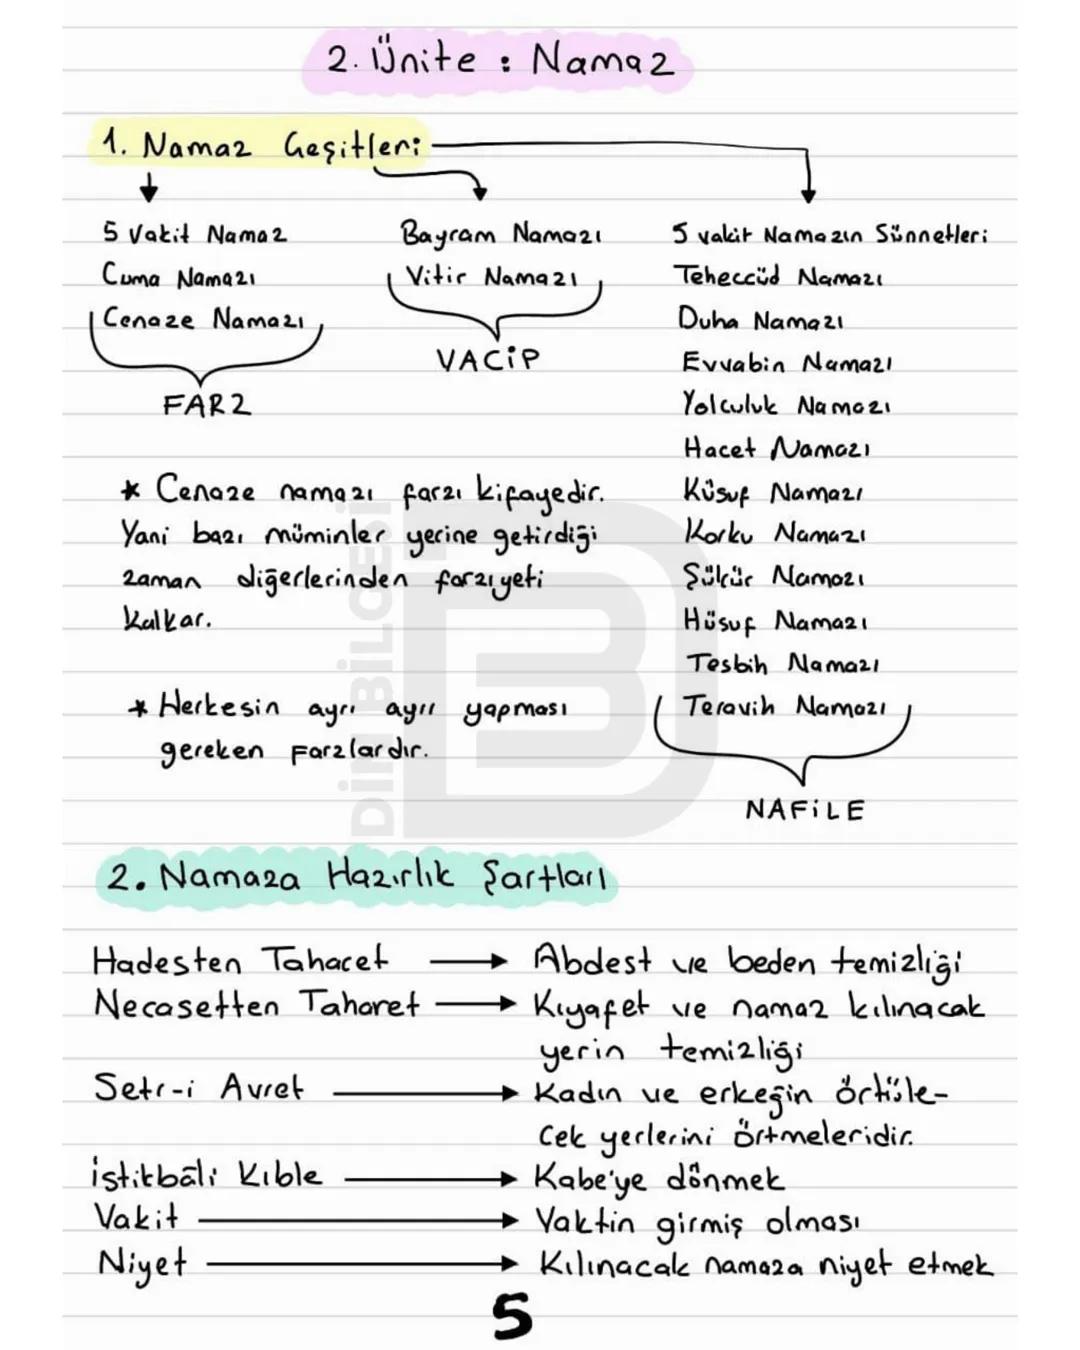 2. Ünite : Namaz
1. Namaz Çeşitleri
5 Vakit Namaz
Cuma Namazı
Cenaze Namazı
FARZ
Bayram Namazı
Vitir Namazı
VACİP
5 vakit Namazın Sünnetleri
Teheccüd Namazı
Duha Namazı
Evvabin Namazı
Yolculuk Namazı
Hacet Namazı
Küsuf Namazı
Korku Namazı
Şükür Namazı
Hüsuf Namazı
Tesbih Namazı
Teravih Namazı
NAFİLE
* Cenaze namazı farzı kifayedir.
Yani bazı müminler yerine getirdiği
zaman diğerlerinden farziyeti
kalkar.
* Herkesin ayrı ayrı yapması
gereken farzlardır.
DİNİ BİLGESİ
2. Namaza Hazırlık Şartları
Hadesten Taharet → Abdest ve beden temizliği
Necasetten Taharet → Kıyafet ve namaz kılınacak
yerin temizliği
Setr-i Avret → Kadın ve erkeğin örtüle-
cek yerlerini örtmeleridir.
İstikbâli Kıble → Kabe'ye dönmek
Vakit → Vaktin girmiş olması
Niyet → Kılınacak namaza niyet etmek
5